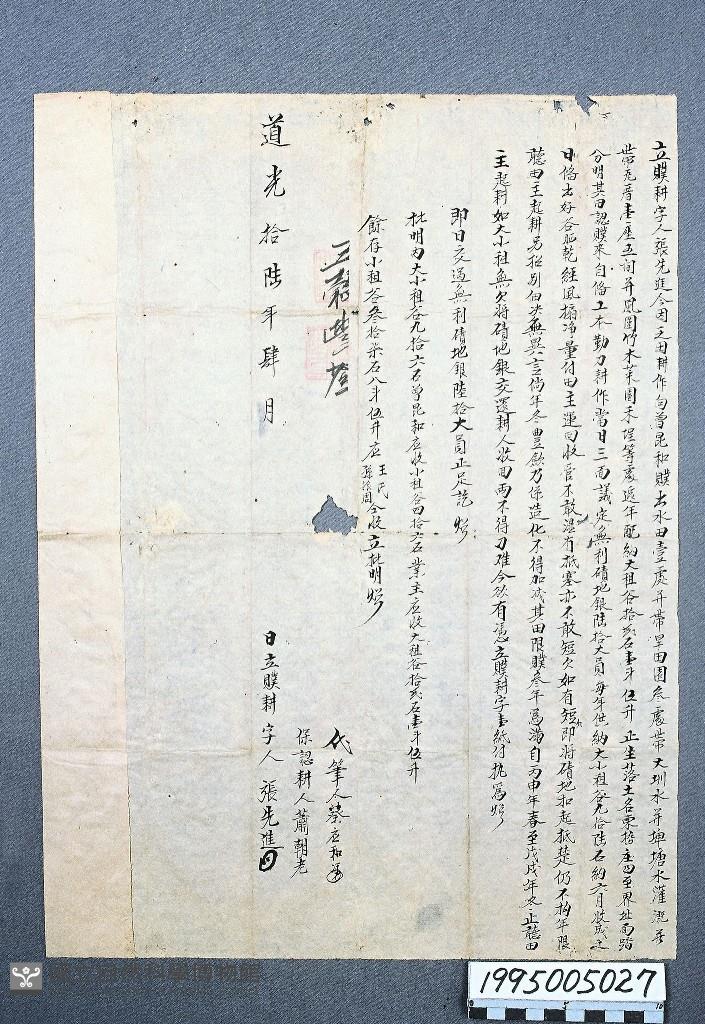 立贌耕字人張先進今因乏田耕作向曾昆和贌出水田壹處并帶旱田園叁處帶大圳水并埤塘水灌溉並
帶瓦厝壹座五間并圍竹木菜園禾埕等處遞年配納大租谷拾弍石壹斗伍升正坐落土名東勢庄四至界址面踏
分明其田認贌來自俻工本勤力耕作當日三面議定無利磧地銀陸拾大員每年供納大小租谷九拾陸石納六月收成之
日俻出好谷乾經風搧净量付田主運回收管不敢濕有抵塞亦不敢短欠如有短即將磧地扣起抵楚仍不拘年限
聽田主起耕另招別佃決無異言倘年冬豐歉乃係造化不得加減其田限贌叁年為滿自丙申年春至戊戌年冬止聽田
主起耕如大小租無欠將磧地銀交還耕人收回兩不得刁难今欲有憑立贌耕字壹紙付执為炤
即日交過無利磧地銀陸拾大員正足訖炤
批明內大小租谷九拾六石曾昆和應收小租谷四拾六石業主應收大租谷拾弍石壹斗伍升
餘存小租谷叁拾柒石八斗伍升應王氏仝收立批明炤
代筆人蔡應和
保認耕人蕭朝老
道光拾陸年肆月日立贌耕字人張先進
1995005027